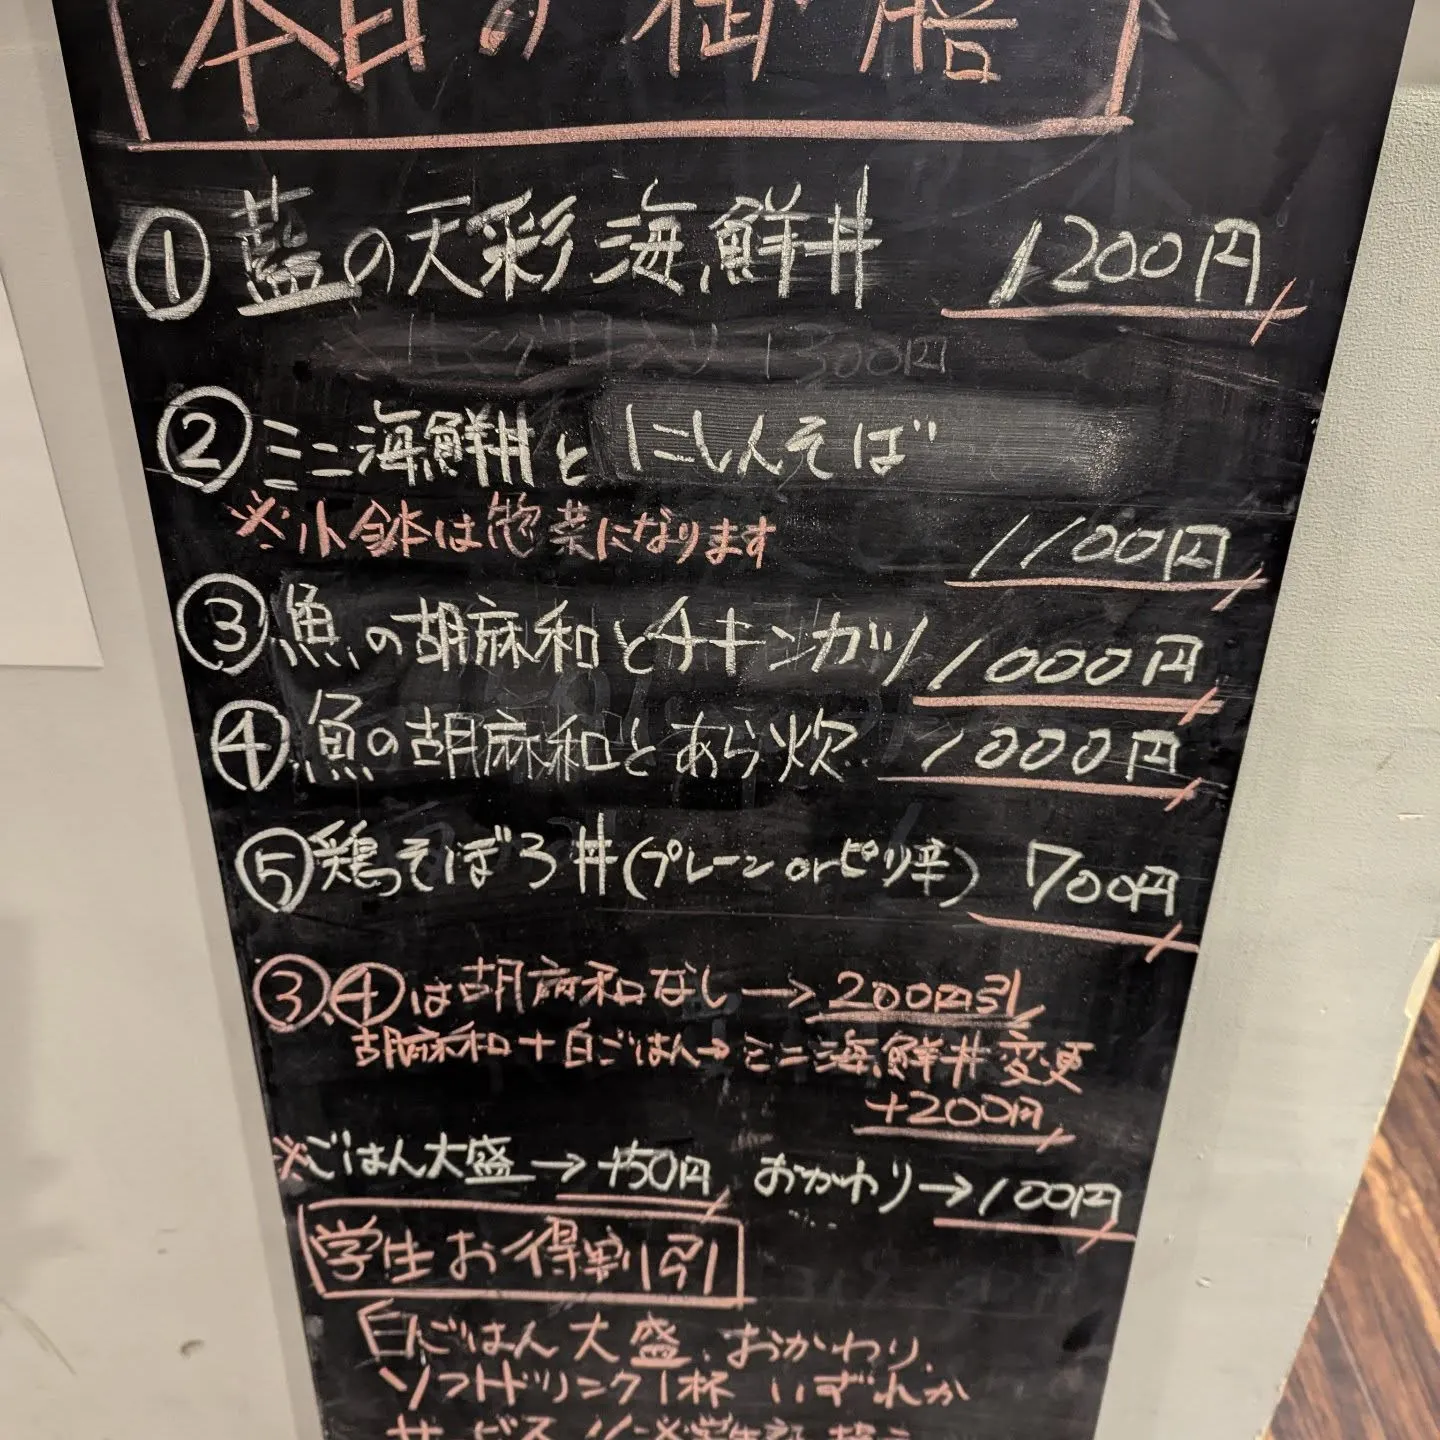 本日の御膳
① 藍の天彩海鮮丼 1200円
② ミニ海鮮丼とにしんそば
※小鉢は惣菜になります 1100円
③ 魚の胡麻和とチキンカツ 1000円
④ 魚の胡麻和とあら炊 1000円
⑤ 鶏そぼろ丼(プレーンorピリ辛) 700円
③④は胡麻和なし→200円引
胡麻和+白ごはん→ミニ海鮮丼変更
+200円
※ごはん大盛→+50円 おかわり→100円
学生お得割引
白ごはん大盛、おかわり、
ソフトドリンク1杯 いずれか
サービス